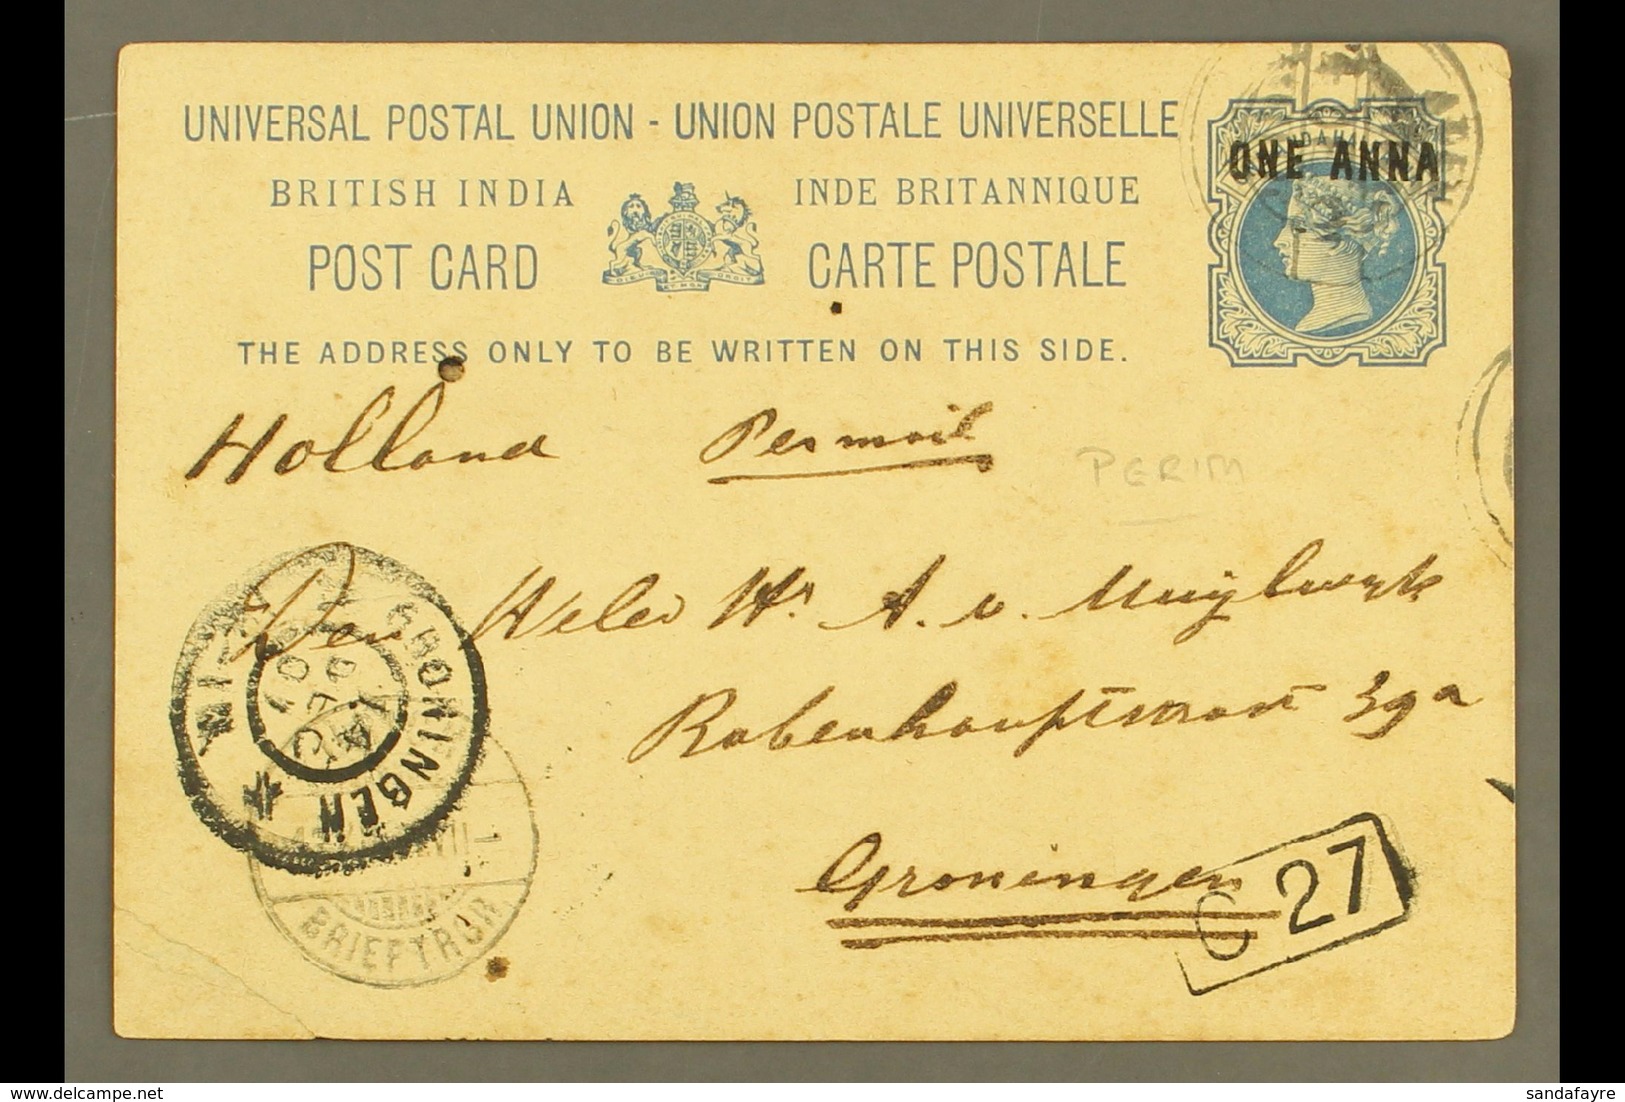 UNIVERSAL POSTAL UNION - UNION POSTALE UNIVERSELLE
BRITISH INDIA INDE BRITANNIQUE
POST CARD CARTE POSTALE
THE ADDRESS ONLY TO BE WRITTEN ON THIS SIDE.
ONE ANNA
ADEN
Holland Per mail
PERIM
Den Heer Hr A. v. Muijlwijk
Rabenhauptstraat 39a
Groningen
C 27
GRONINGEN
BRIEFTRGR
sandafayre